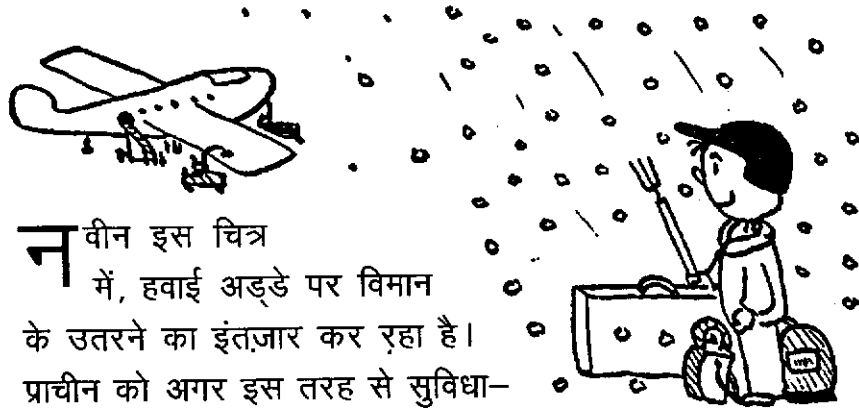 नवीन इस चित्र
में, हवाई अड्डे पर विमान
के उतरने का इंतज़ार कर रहा है।
प्राचीन को अगर इस तरह से सुविधा–